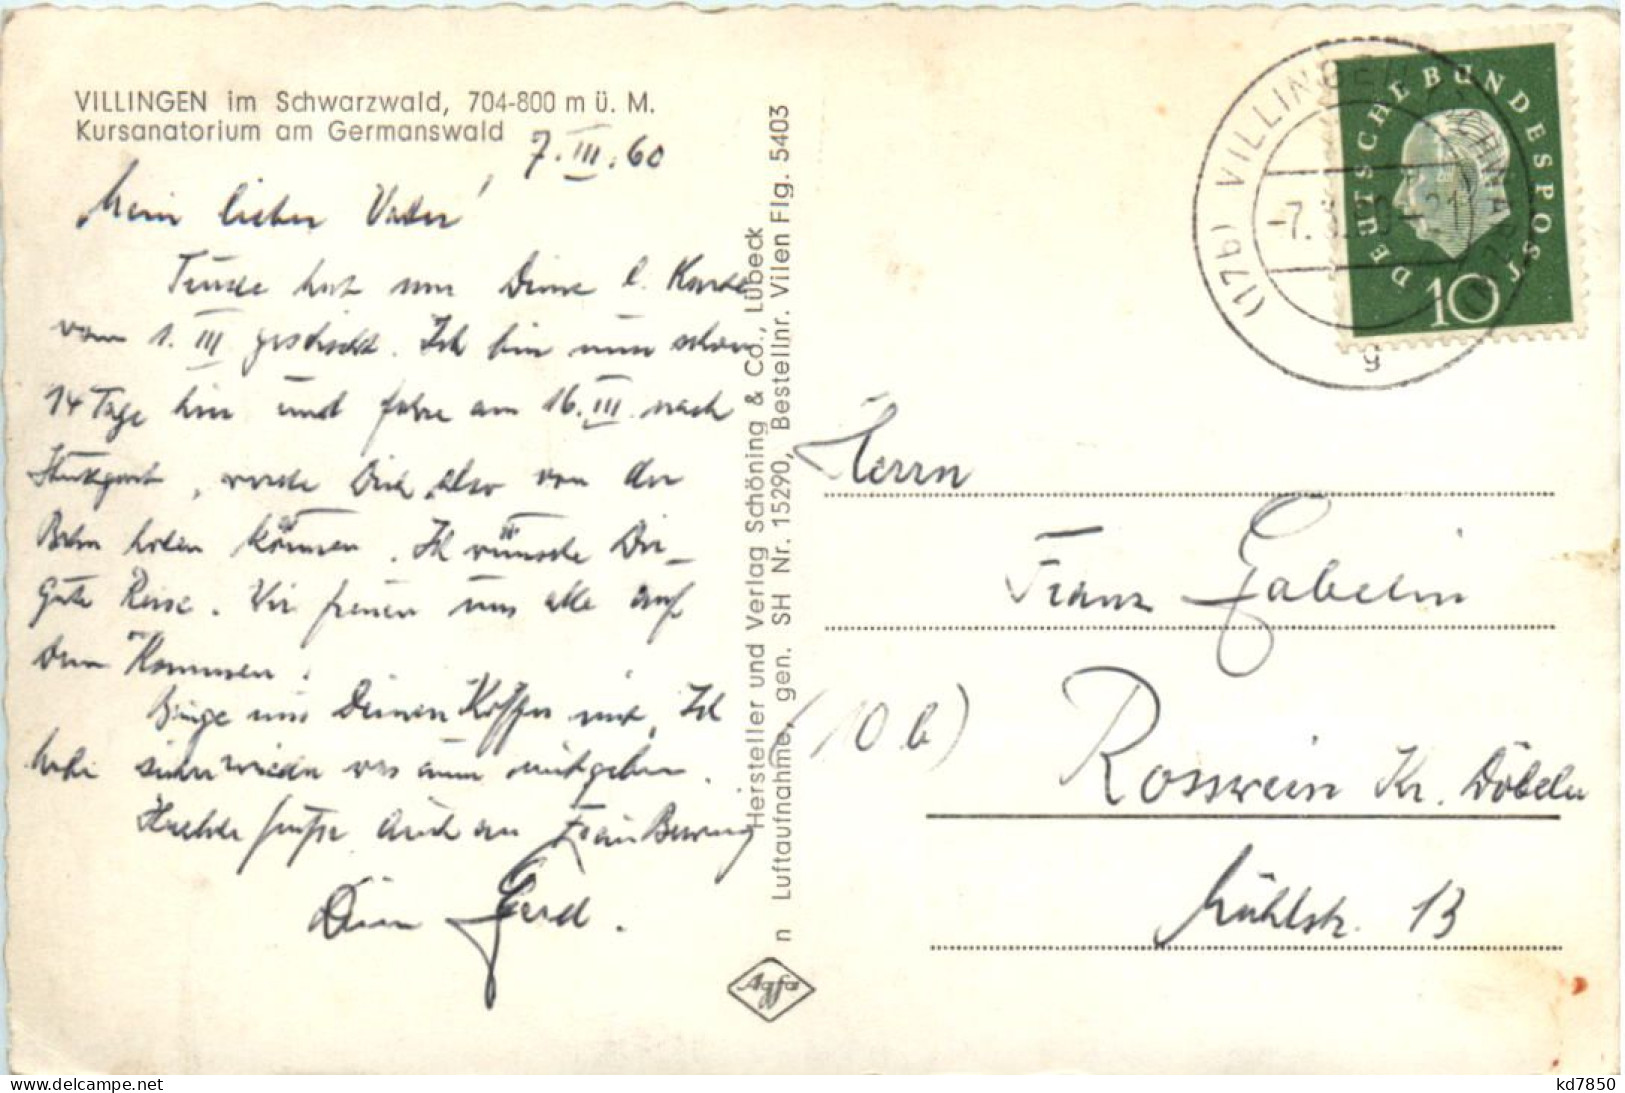 VILLINGEN im Schwarzwald, 704-800 m ü. M.
Kursanatorium am Germanswald
7. III. 60
Mein lieber Vater!
Trude hat mir Deine l. Karte
vom 1. III geschickt. Ich bin nun schon
14 Tage hier und fahre am 16. III. nach
Stuttgart, werde Dich also von der
Bahn holen können. Ich wünsche Dir
gute Reise. Wir freuen uns alle auf
Dein Kommen.
Bringe uns Deinen Koffer mit. Ich
habe wieder was zum mitgeben.
Herzliche Grüße auch an Frau
Dein Gerd.
Hersteller und Verlag Schöning & Co., Lübeck
n Luftaufnahme, gen. SH Nr. 15290, Bestellnr. Vilen Flg. 5403
Agfa
(17b) VILLINGEN (SCHWARZW)
-7.3.60-21
g
DEUTSCHE BUNDESPOST
10
Herrn
Franz Gabelin
(10b) Rosswein Kr. Döbeln
Mühlstr. 13
www.delcampe.net
kd7850